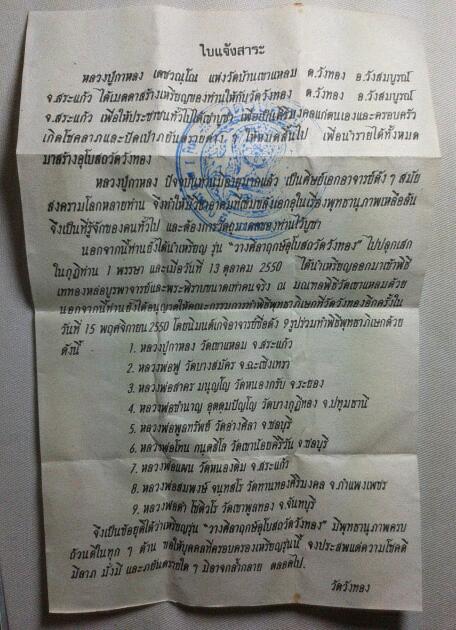 ใบแจ้งสาระ
หลวงปู่กาหลง เตชวณฺโณ แห่งวัดบ้านเขาแหลม ต.วังทอง อ.วังสมบูรณ์
จ.สระแก้ว ได้เมตตาสร้างเหรียญของท่านให้กับวัดวังทอง ต.วังทอง อ.วังสมบูรณ์
จ.สระแก้ว เพื่อให้ประชาชนทั่วไปได้เช่าบูชา เพื่อเป็นศิริมงคลแก่ตนเองและครอบครัว
เกิดโชคลาภและปัดเป่าภยันตรายต่าง ๆ ให้หมดสิ้นไป เพื่อนำรายได้ทั้งหมด
มาสร้างอุโบสถวัดวังทอง
หลวงปู่กาหลง ปัจจุบันท่านมีอายุมากแล้ว เป็นศิษย์เอกอาจารย์ดัง ๆ สมัย
สงครามโลกหลายท่าน จึงทำให้มีวิชาอาคมที่เข้มขลังเอกอุในเรื่องพุทธานุภาพเหลือล้น
จึงเป็นที่รู้จักของคนทั่วไป และต้องการวัตถุมงคลของท่านไว้บูชา
นอกจากนี้ท่านยังได้นำเหรียญ รุ่น "วางศิลาฤกษ์อุโบสถวัดวังทอง" ไปปลุกเสก
ในกุฏิท่าน 1 พรรษา และเมื่อวันที่ 13 ตุลาคม 2550 ได้นำเหรียญออกมาเข้าพิธี
เททองหล่อบูรพาจารย์และพระพิราบขนาดเท่าคนจริง ณ มณฑลพิธีวัดเขาแหลมด้วย
นอกจากนี้ท่านยังได้อนุญาตให้คณะกรรมการทำพิธีพุทธาภิเษกที่วัดวังทองอีกครั้งใน
วันที่ 15 พฤศจิกายน 2550 โดยนิมนต์เกจิอาจารย์ชื่อดัง 9 รูปร่วมทำพิธีพุทธาภิเษกด้วย
ดังนี้
1. หลวงปู่กาหลง วัดเขาแหลม จ.สระแก้ว
2. หลวงพ่อฟู วัดบางสมัคร จ.ฉะเชิงเทรา
3. หลวงพ่อสาคร มนุญฺโญ วัดหนองกรับ จ.ระยอง
4. หลวงพ่อชำนาญ อุตฺตมปัญฺโญ วัดบางกุฎีทอง จ.ปทุมธานี
5. หลวงพ่อพูลทรัพย์ วัดอ่างศิลา จ.ชลบุรี
6. หลวงพ่อโทน กนฺตสีโล วัดเขาน้อยคีรีวัน จ.ชลบุรี
7. หลวงพ่อแผน วัดหนองติม จ.สระแก้ว
8. หลวงพ่อสมพงษ์ จนฺทสโร วัดทานทองศิริมงคล จ.กำแพงเพชร
9. หลวงพ่อคำ โชติวโร วัดเขาพูลทอง จ.จันทบุรี
จึงเป็นข้อยุติได้ว่าเหรียญรุ่น "วางศิลาฤกษ์อุโบสถวัดวังทอง" มีพุทธานุภาพครบ
ถ้วนดีในทุก ๆ ด้าน ขอให้บุคคลที่ครอบครองเหรียญรุ่นนี้ จงประสพแต่ความโชคดี
มีลาภ มั่งมี และภยันตรายใด ๆ มิอาจกล้ำกลาย ตลอดไป.
วัดวังทอง